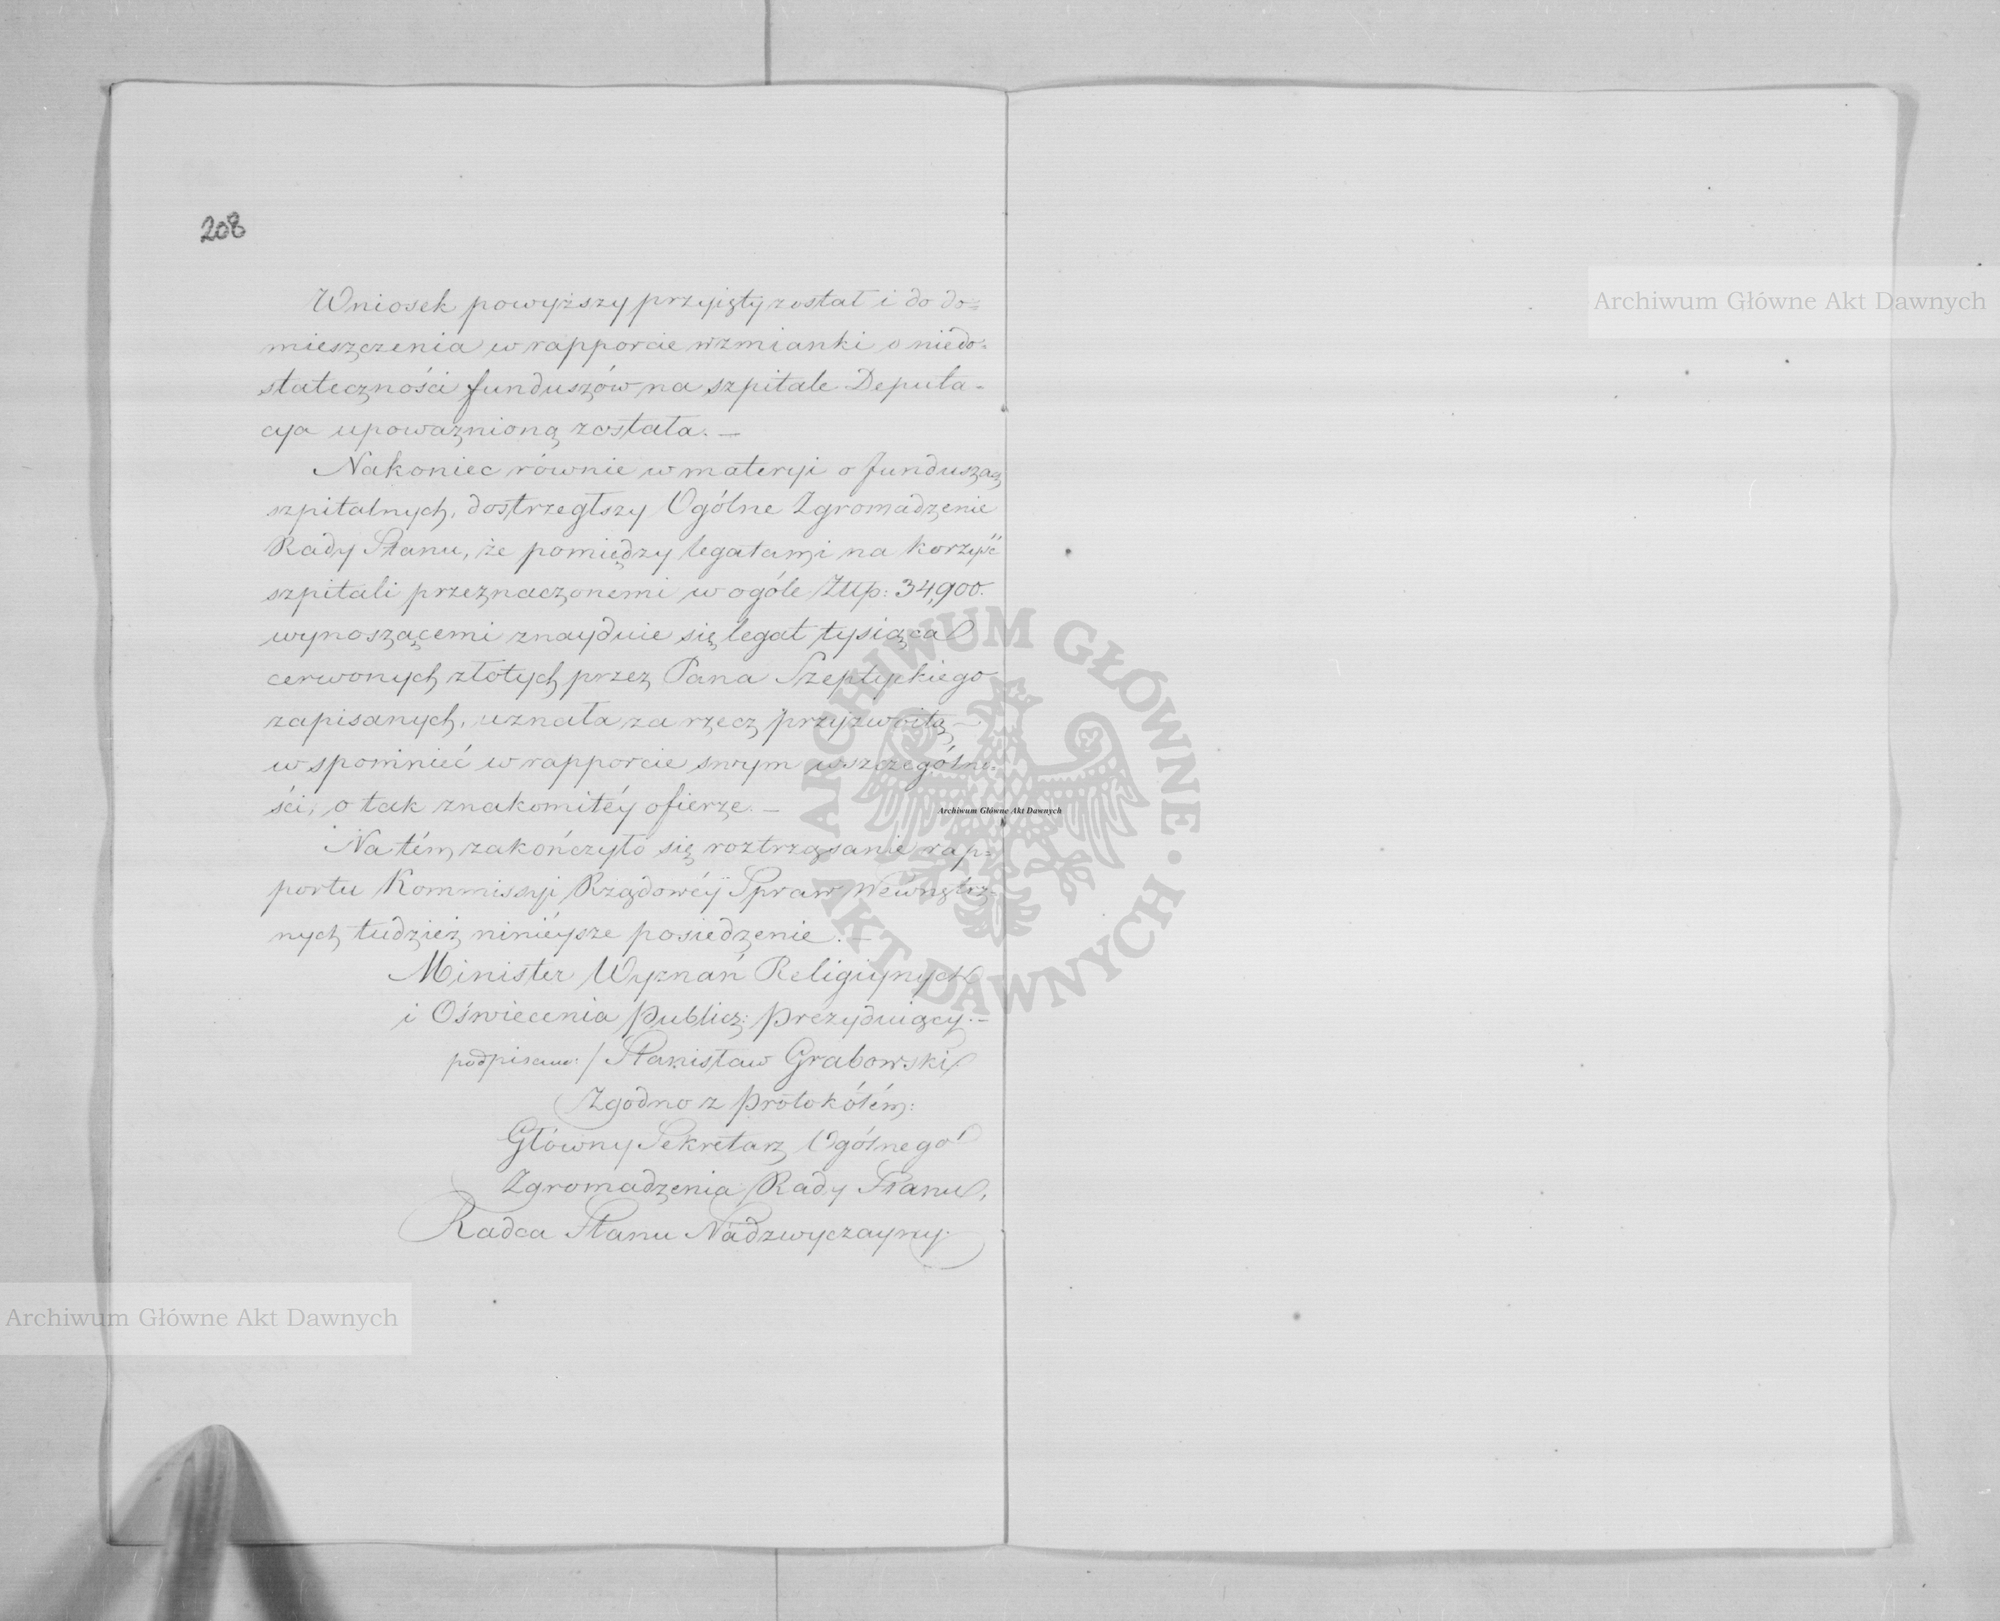 208
Wniosek powyższy przyięty został i do do-
mieszczenia w rapporcie wzmianki o niedo-
stateczności funduszów na szpitale Deputa-
cya upoważnioną została. —
Nakoniec równie w materyi o funduszach
szpitalnych, dostrzegłszy Ogólne Zgromadzenie
Rady Stanu, że pomiędzy legatami na korzyść
szpitali przeznaczonemi w ogóle Złlp: 34,900.
wynoszącemi znayduie się legat tysiąca
cerwonych złotych przez Pana Szeptyckiego
zapisanych, uznała za rzecz przyzwoitą —
wspomnieć w rapporcie swym w szczególno-
ści, o tak znakomitéy ofierze. —
Na tém zakończyło się roztrząsanie rap-
portu Kommissyi Rządowéy Spraw Wewnętrz-
nych tudzież ninieysze posiedzenie. —
Minister Wyznań Religiynych
i Oświecenia Publicz: Prezyduiący. —
podpisano: / Stanisław Grabowski
Zgodno z Protokółém:
Główny Sekretarz Ogólnego
Zgromadzenia Rady Stanu,
Radca Stanu Nadzwyczayny.
Archiwum Główne Akt Dawnych
Archiwum Główne Akt Dawnych
ARCHIWUM GŁÓWNE • AKT DAWNYCH •
Archiwum Główne Akt Dawnych